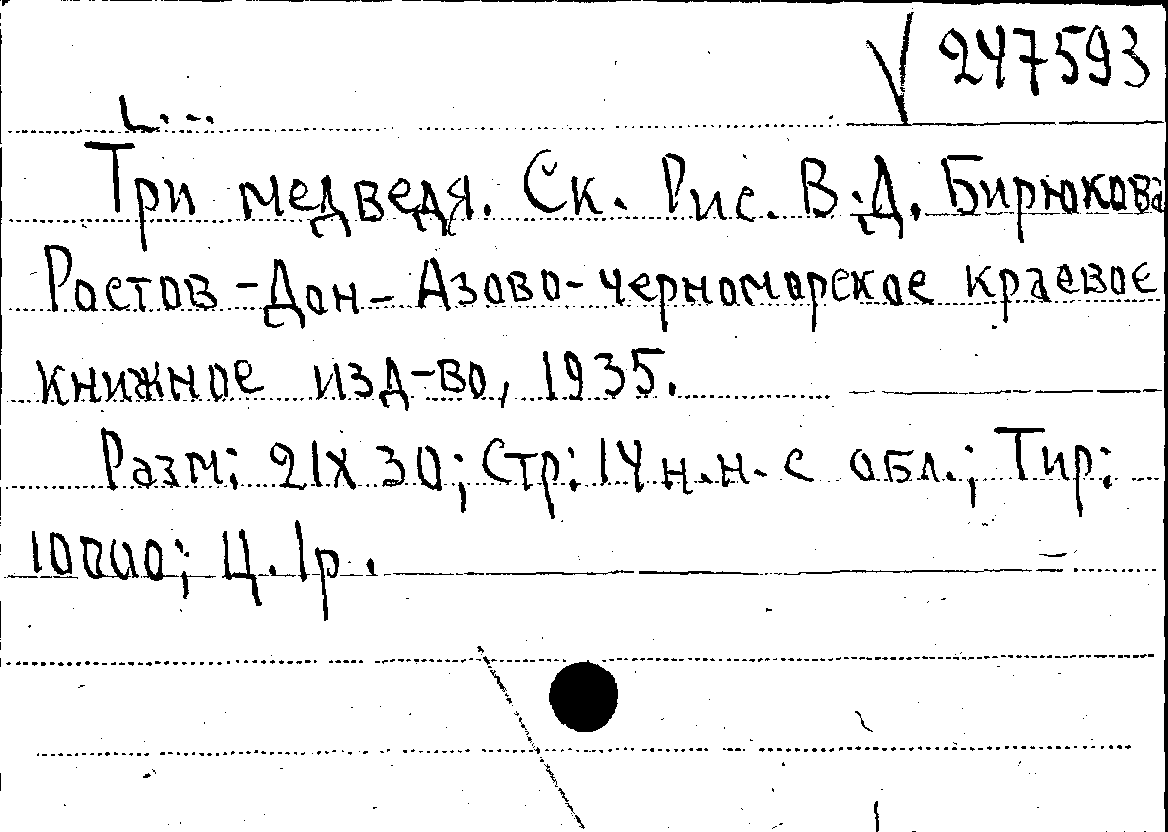 √ 247593
L...
Три медведя. Ск. Рис. В.Д. Бирюкова
Ростов-Дон - Азово-черноморское краевое
книжное изд-во, 1935.
Разм: 21х30; Стр: 14 н.н. с обл.; Тир:
10000; Ц. 1р.